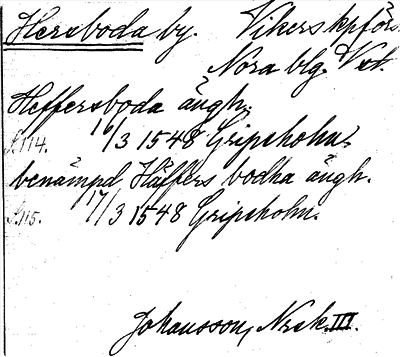 Hersboda by. Vikers kpförs.
Nora blg. Vst.
Heffersboda ängh.
s. 114. 16/3 1548 Gripsholm,
benämpd Häffers bodha ängh.
s. 115. 17/3 1548 Gripsholm.
Johansson, Nrsk. III.